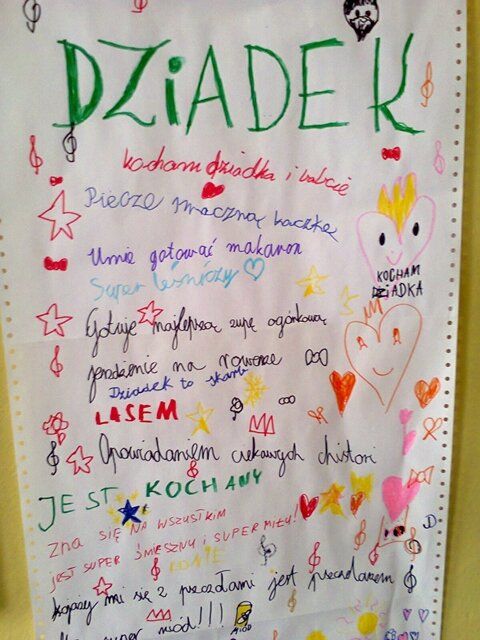 DZIADEK
kocham dziadka i babcię
Piecze smaczną kaczkę
Umie gotować makaron
Super leśniczy
KOCHAM
DZIADKA
Gotuje najlepszą zupę ogórkową
jeżdżenie na rowerze
Dziadek to skarb
LASEM
Opowiadaniem ciekawych chistori
JEST KOCHANY
ZNA SIĘ NA WSZUSTKIM
JEST SUPER ŚMIESZNY I SUPER MIŁY!
kojaży mi się z pszczołami jest pszczelarzem
super miód!!!
MIÓD